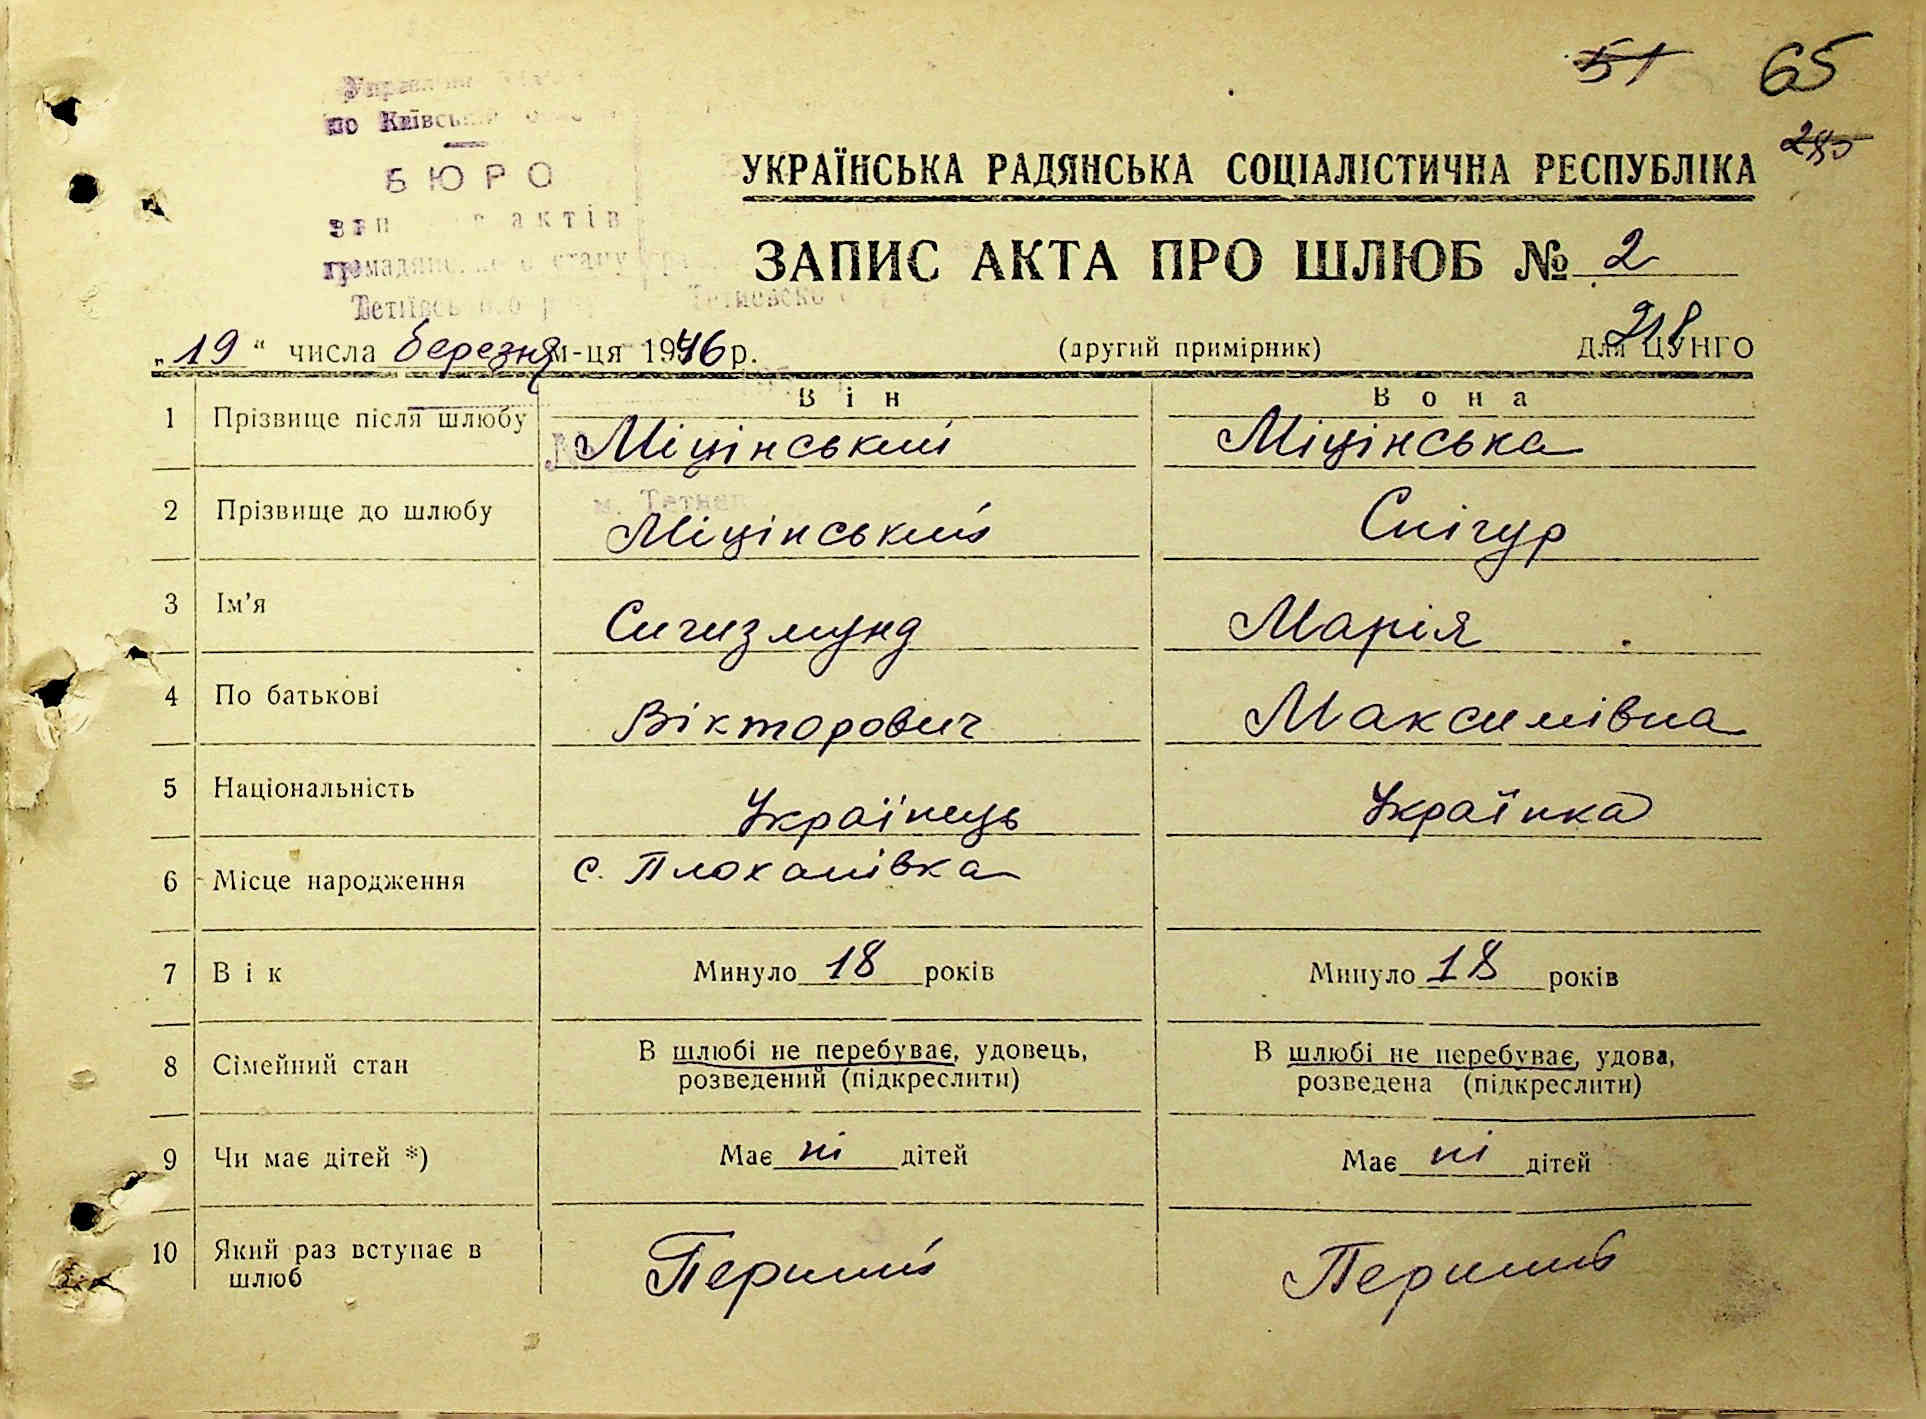 51 65
285
по Київській
БЮРО
актів
УКРАЇНСЬКА РАДЯНСЬКА СОЦІАЛІСТИЧНА РЕСПУБЛІКА
ЗАПИС АКТА ПРО ШЛЮБ № 2
218
„19“ числа березня м-ця 1946 р. (другий примірник) Для ЦУНГО
Він Вона
1 Прізвище після шлюбу Міцінський Міцінська
м. Тетиев
2 Прізвище до шлюбу Міцінський Снігур
3 Ім’я Сигизмунд Марія
4 По батькові Вікторович Максимівна
5 Національність Українець Українка
6 Місце народження с. Плоханівка
7 Вік Минуло 18 років Минуло 18 років
8 Сімейний стан В шлюбі не перебуває, удовець, В шлюбі не перебуває, удова,
розведений (підкреслити) розведена (підкреслити)
9 Чи має дітей *) Має ні дітей Має ні дітей
10 Який раз вступає в Перший Перший
шлюб